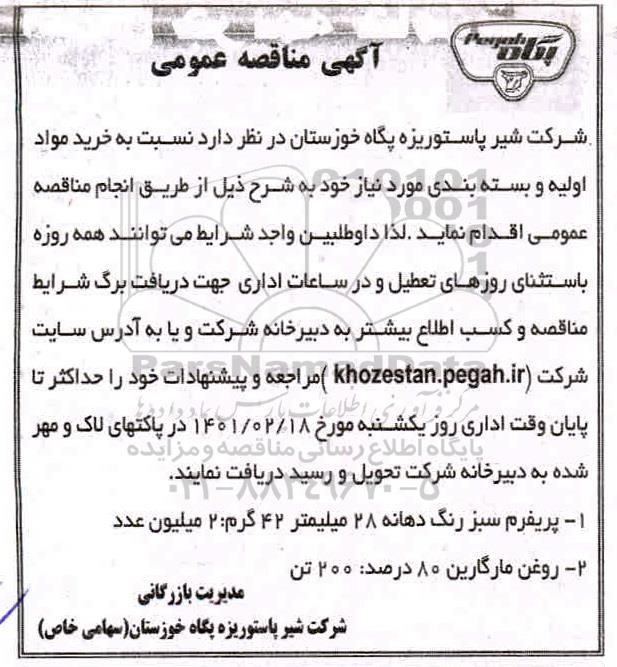 Pegah
پگاه
آگهی مناقصه عمومی
شرکت شیر پاستوریزه پگاه خوزستان در نظر دارد نسبت به خرید مواد
اولیه و بسته بندی مورد نیاز خود به شرح ذیل از طریق انجام مناقصه
عمومی اقدام نماید .لذا داوطلبین واجد شرایط می توانند همه روزه
باستثنای روزهای تعطیل و در ساعات اداری جهت دریافت برگ شرایط
مناقصه و کسب اطلاع بیشتر به دبیرخانه شرکت و یا به آدرس سایت
شرکت (khozestan.pegah.ir )مراجعه و پیشنهادات خود را حداکثر تا
پایان وقت اداری روز یکشنبه مورخ ۱۴۰۱/۰۲/۱۸ در پاکتهای لاک و مهر
شده به دبیرخانه شرکت تحویل و رسید دریافت نمایند.
۱- پریفرم سبز رنگ دهانه ۲۸ میلیمتر ۴۲ گرم:۲ میلیون عدد
۲- روغن مارگارین ۸۰ درصد: ۲۰۰ تن
مدیریت بازرگانی
شرکت شیر پاستوریزه پگاه خوزستان(سهامی خاص)
ParsNamadData
مرکز فرآوری اطلاعات پارس نماد داده ها
پایگاه اطلاع رسانی مناقصه و مزایده
۰۲۱-۸۸۳۴۹۶۷۰-۵